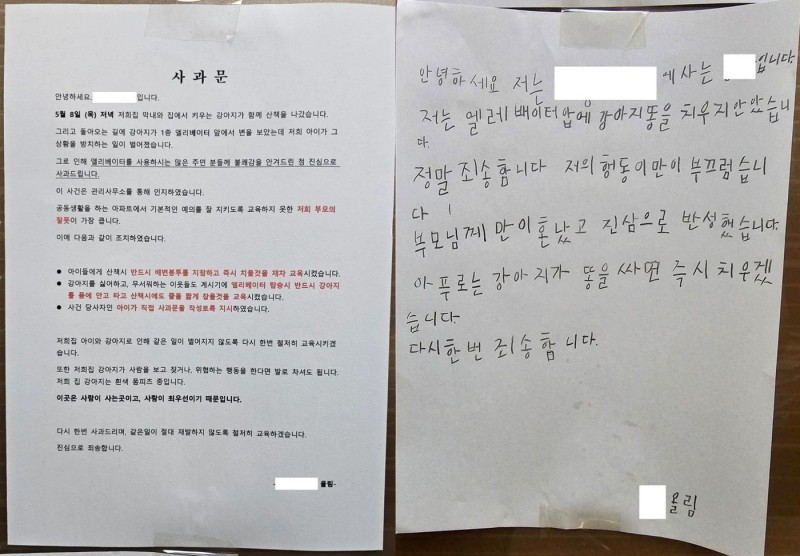 사과문
안녕하세요. 입니다.
5월 8일 (목) 저녁 저희집 막내와 집에서 키우는 강아지가 함께 산책을 나갔습니다.
그리고 돌아오는 길에 강아지가 1층 엘리베이터 앞에서 변을 보았는데 저희 아이가 그
상황을 방치하는 일이 벌어졌습니다.
그로 인해 엘리베이터를 사용하시는 많은 주변 분들께 불쾌감을 안겨드린 점 진심으로
사과드립니다.
이 사건은 관리사무소를 통해 인지하였습니다.
공동생활을 하는 아파트에서 기본적인 예의를 잘 지키도록 교육하지 못한 저희 부모의
잘못이 가장 큽니다.
이에 다음과 같이 조치하였습니다.
● 아이들에게 산책시 반드시 배변봉투를 지참하고 즉시 치울것을 재차 교육시켰습니다.
● 강아지를 싫어하고, 무서워하는 이웃들도 계시기에 엘리베이터 탑승시 반드시 강아지
를 품에 안고 타고 산책시에도 줄을 짧게 잡을것을 교육시켰습니다.
● 사건 당사자인 아이가 직접 사과문을 작성토록 지시하였습니다.
저희집 아이와 강아지로 인해 같은 일이 벌어지지 않도록 다시 한번 철저히 교육시키겠
습니다.
또한 저희집 강아지가 사람을 보고 짖거나, 위협하는 행동을 한다면 발로 차셔도 됩니다.
저희 집 강아지는 흰색 폼피츠 종입니다.
이곳은 사람이 사는곳이고, 사람이 최우선이기 때문입니다.
다시 한번 사과드리며, 같은일이 절대 재발하지 않도록 철저히 교육하겠습니다.
진심으로 죄송합니다.
- 올림-
안녕하세요 저는 에사는 입니다.
저는 엘레배이터 앞에 강아지똥을 치우지안았습니
다.
정말 죄송함니다 저의 행동이만이 부끄럼습니
다
부모님께 만이혼났고 진심으로 반성했습니다.
아푸로는 강아지가 똥을 싸면 즉시 치우겠
습니다.
다시한번 죄송함니다.
올림